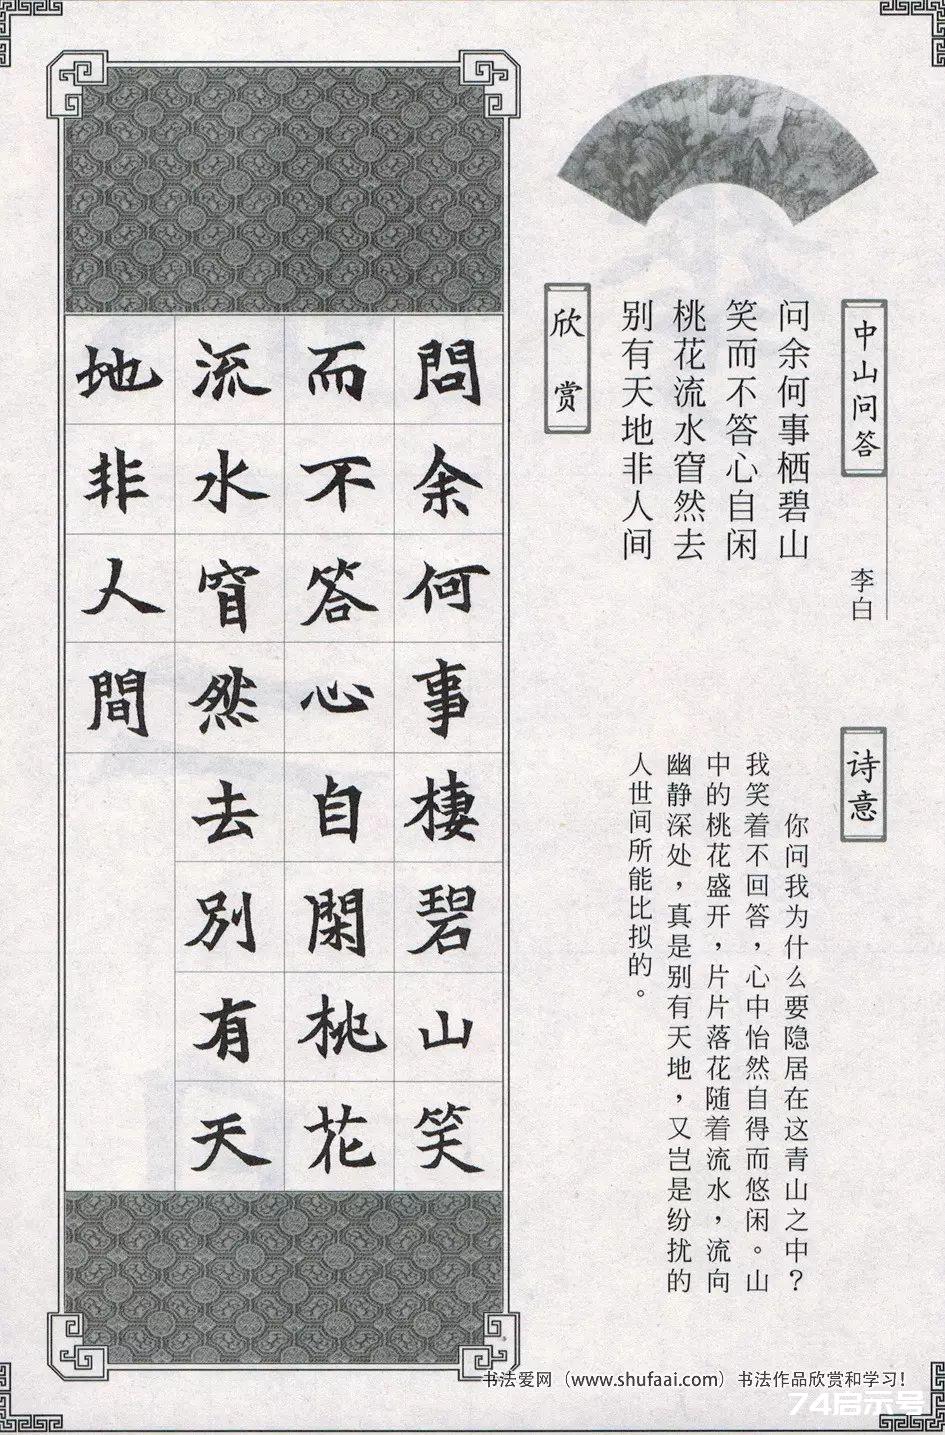 中山问答
李白
问余何事栖碧山
笑而不答心自闲
桃花流水窅然去
别有天地非人间
诗意
你问我为什么要隐居在这青山之中？
我笑着不回答，心中怡然自得而悠闲。山
中的桃花盛开，片片落花随着流水，流向
幽静深处，真是别有天地，又岂是纷扰的
人世间所能比拟的。
欣赏
問余何事棲碧山笑
而不答心自閑桃花
流水窅然去別有天
地非人間
书法爱网（www.shufaai.com）书法作品欣赏和学习！
74启示号